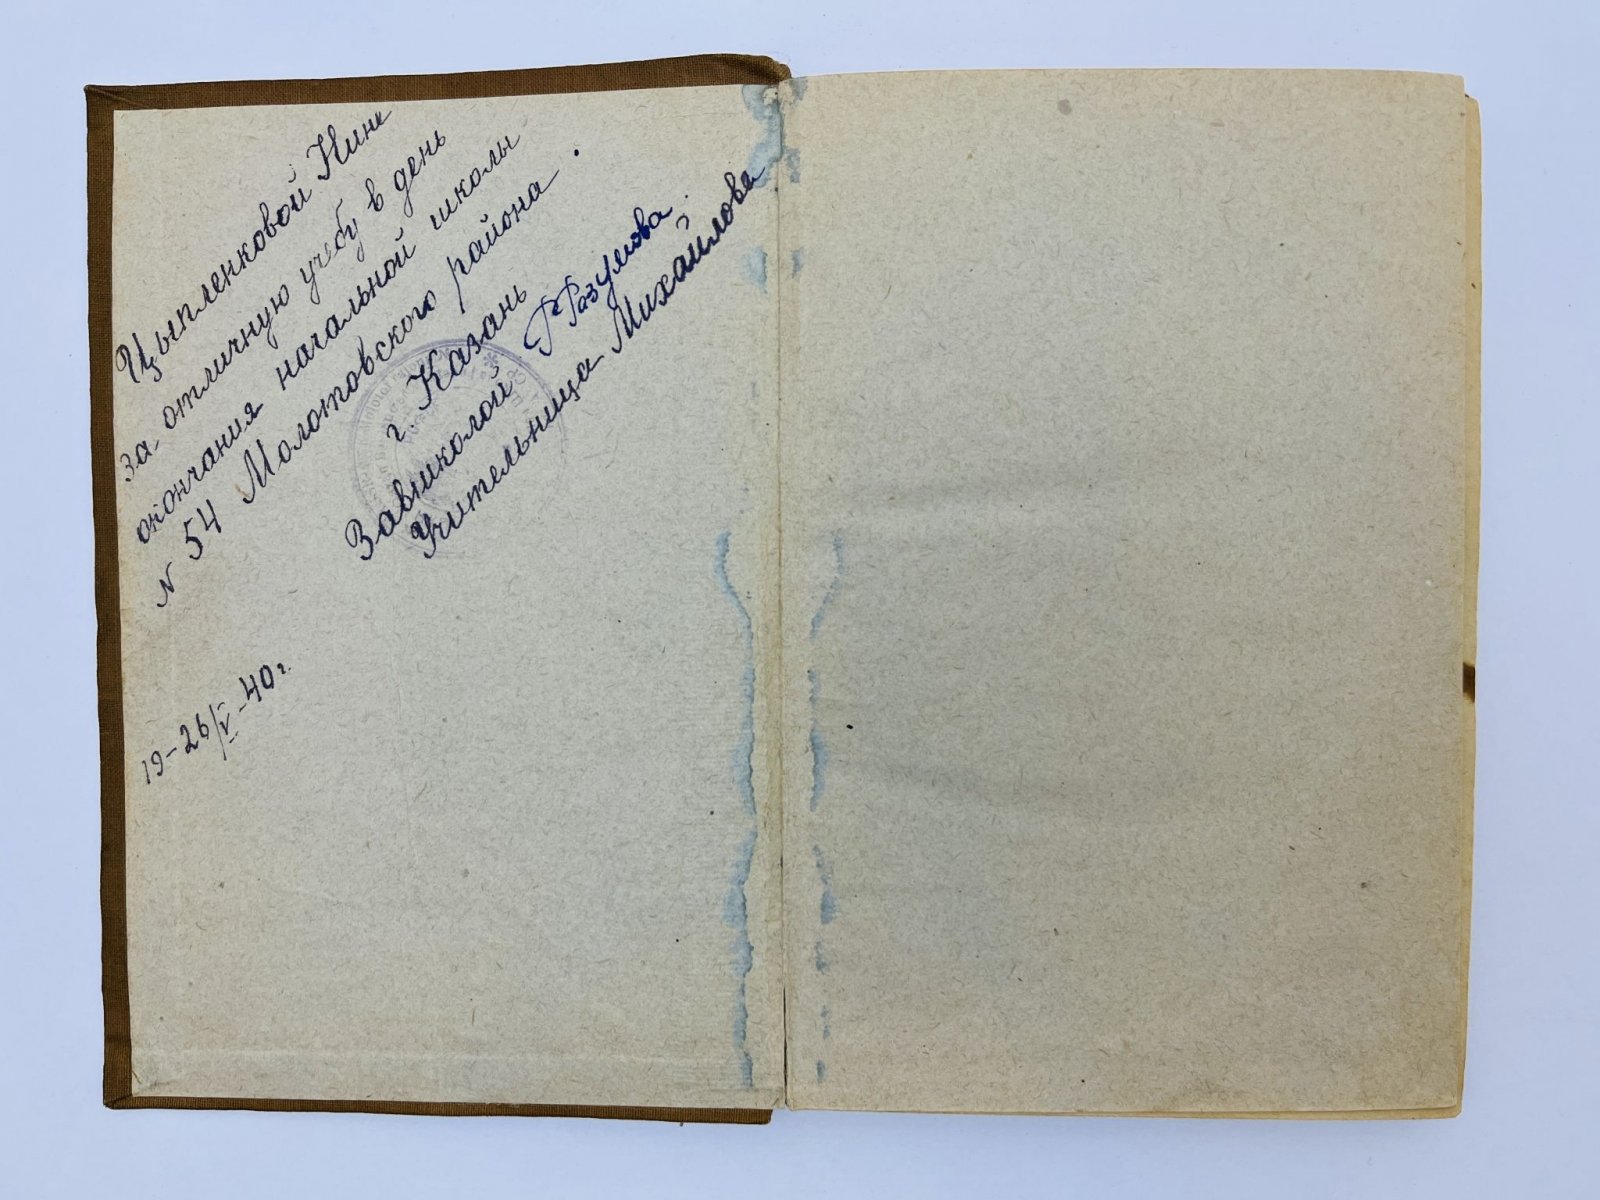 Цыпленковой Нине
за отличную учебу в день
окончания начальной школы
N 54 Молотовского района.
г. Казань
Завшколой Разумова
Учительница Михайлова
19-26/V-40 г.